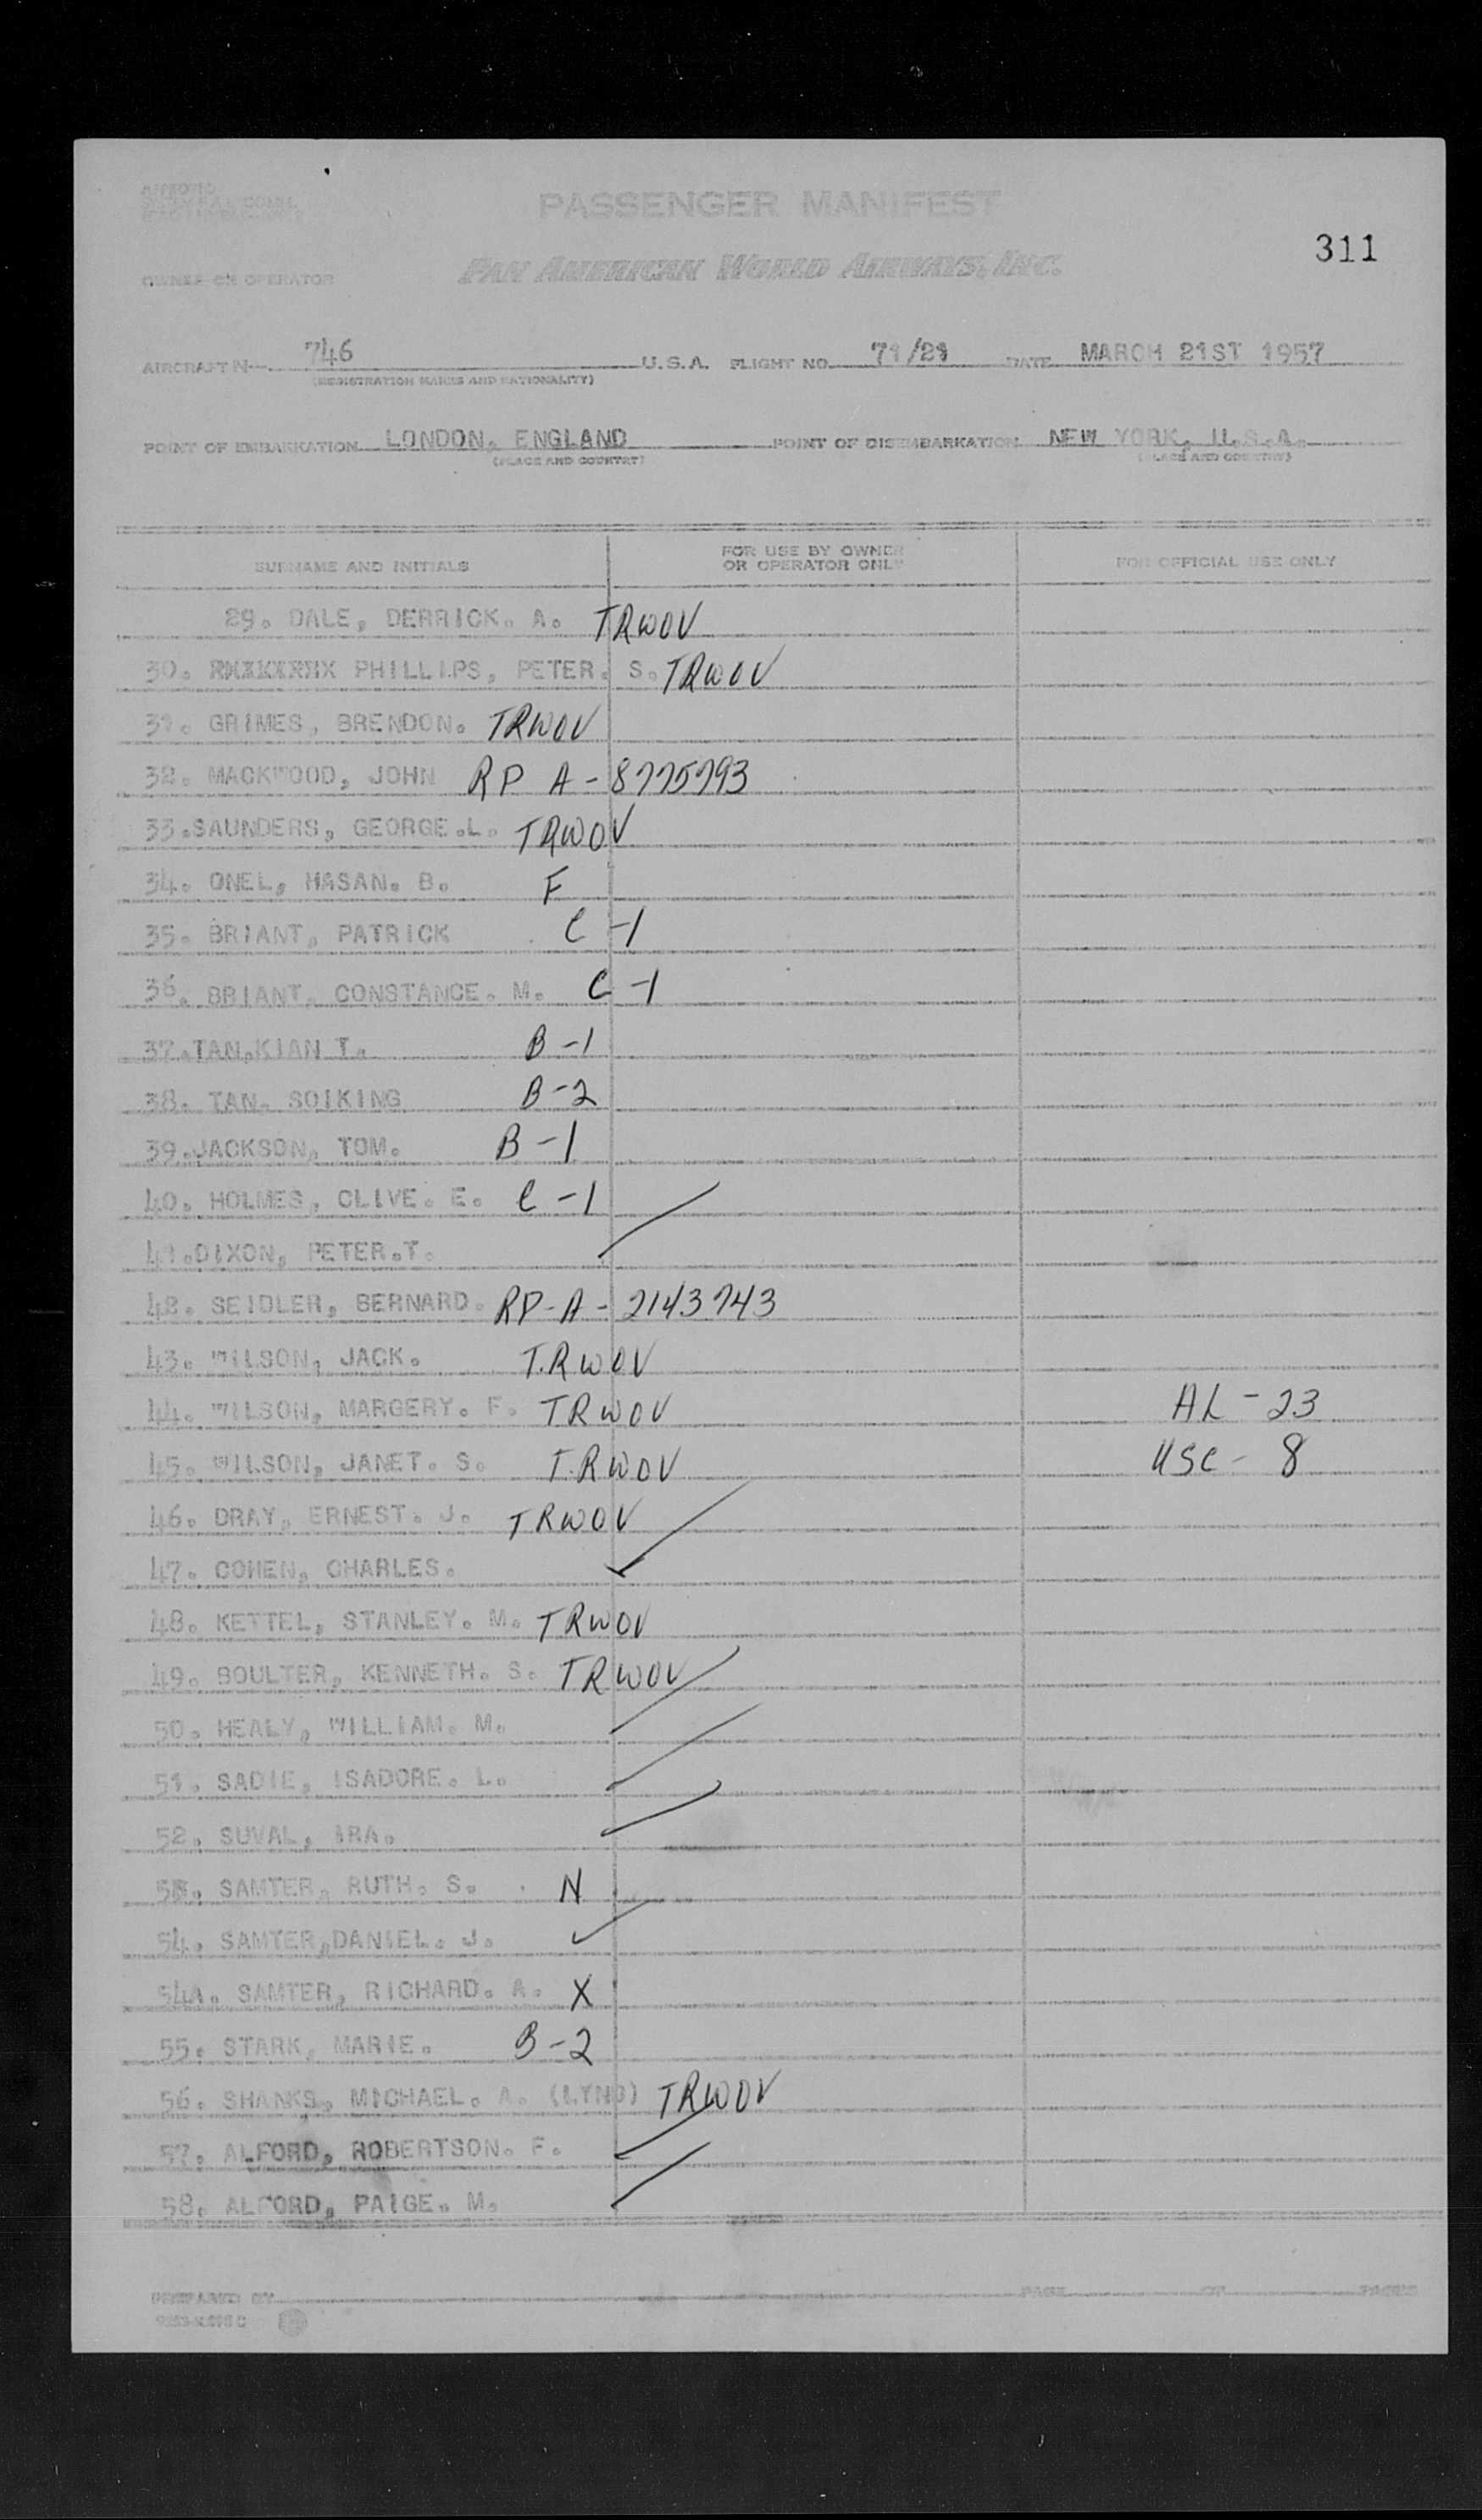 APPROVED
PASSENGER MANIFEST
311
OWNER OR OPERATOR
PAN AMERICAN WORLD AIRWAYS, INC.
AIRCRAFT N- 746 U.S.A. FLIGHT NO. 71/21 DATE MARCH 21ST 1957
(REGISTRATION MARKS AND NATIONALITY)
POINT OF EMBARKATION LONDON, ENGLAND POINT OF DISEMBARKATION NEW YORK, U.S.A.
(PLACE AND COUNTRY) (PLACE AND COUNTRY)
SURNAME AND INITIALS FOR USE BY OWNER OR OPERATOR ONLY FOR OFFICIAL USE ONLY
29. DALE, DERRICK. A. TRWOV
30. PHILLIPS, PETER. S. TRWOV
31. GRIMES, BRENDON. TRWOV
32. MACKWOOD, JOHN RP A-8775793
33.SAUNDERS, GEORGE.L. TRWOV
34. ONEL, HASAN. B. F
35. BRIANT, PATRICK C-1
36. BRIANT, CONSTANCE. M. C-1
37.TAN,KIAN T. B-1
38. TAN. SOIKING B-2
39.JACKSON, TOM. B-1
40. HOLMES, CLIVE. E. C-1
41.DIXON, PETER.T.
42. SEIDLER, BERNARD. RP-A-2143743
43. WILSON, JACK. T.RWOV
44. WILSON, MARGERY. F. TRWOV AL-23
45. WILSON, JANET. S. T.RWOV USC- 8
46. DRAY, ERNEST. J. TRWOV
47. COHEN, CHARLES. ✓
48. KETTEL, STANLEY. M. TRWOV
49. BOULTER, KENNETH. S. TRWOV
50. HEALY, WILLIAM. M.
51. SADIE, ISADORE. L.
52. SUVAL, IRA.
53. SAMTER, RUTH. S. N
54. SAMTER,DANIEL. J. ✓
54A. SAMTER, RICHARD. A. X
55. STARK, MARIE. B-2
56. SHANKS, MICHAEL. A. TRWOV
57. ALFORD, ROBERTSON. F.
58. ALFORD, PAIGE. M.
PREPARED BY PAGE OF PAGES